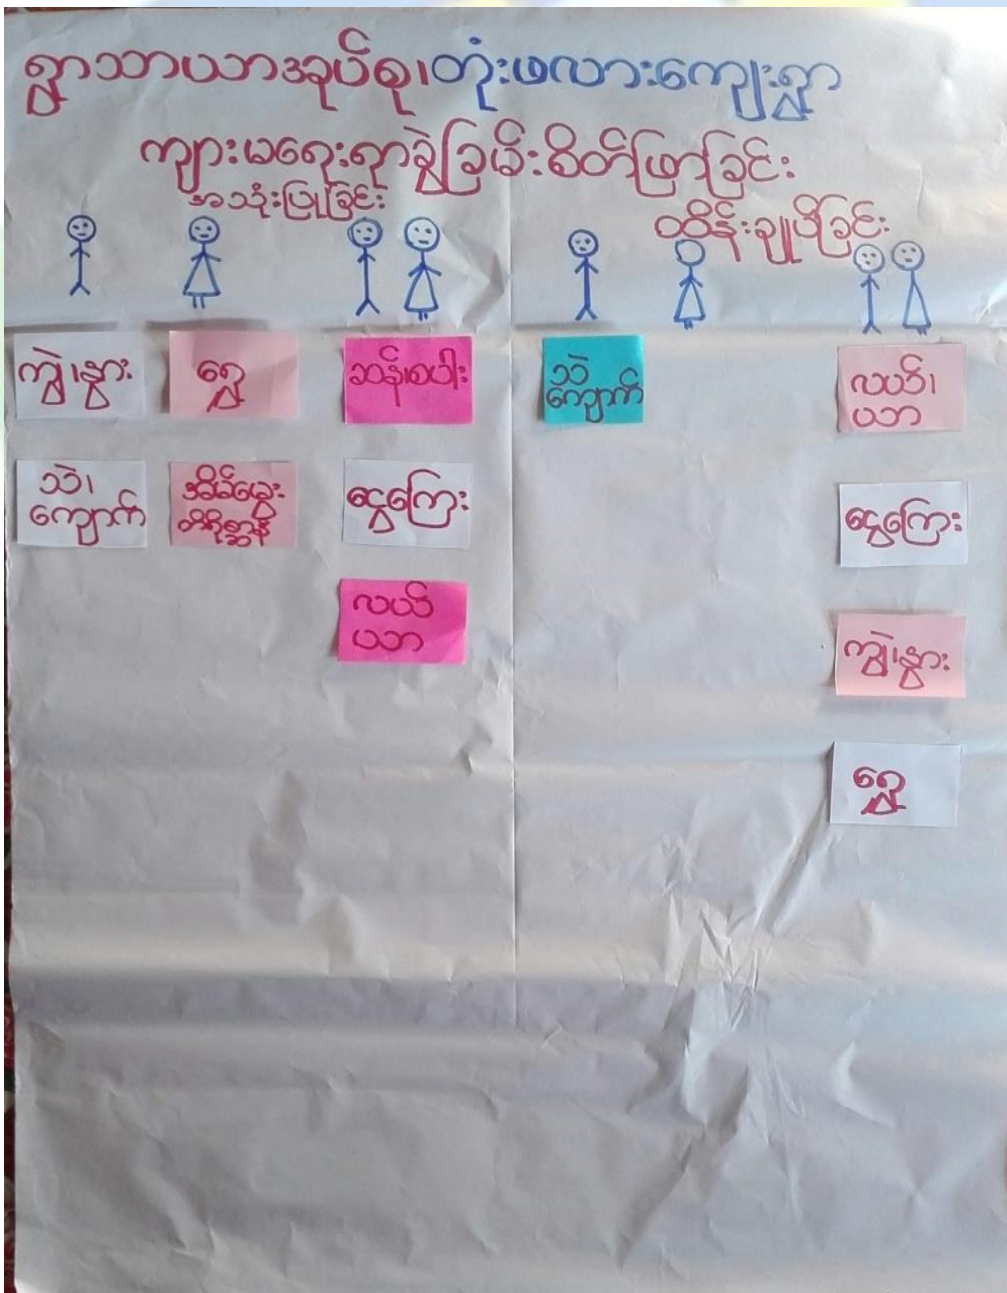 ရွာသာယာအုပ်စု၊တုံးဖလားကျေးရွာ
ကျား၊မရေးရာခွဲခြမ်းစိတ်ဖြာခြင်း
အသုံးပြုခြင်း
ထိန်းချုပ်ခြင်း
ကျွဲ၊နွား
ရွှေ
ဆန်၊စပါး
သဲ
ကျောက်
လယ်၊
ယာ
သဲ၊
ကျောက်
အိမ်မွေး
တိရိစ္ဆာန်
ငွေကြေး
ငွေကြေး
လယ်
ယာ
ကျွဲ၊နွား
ရွှေ